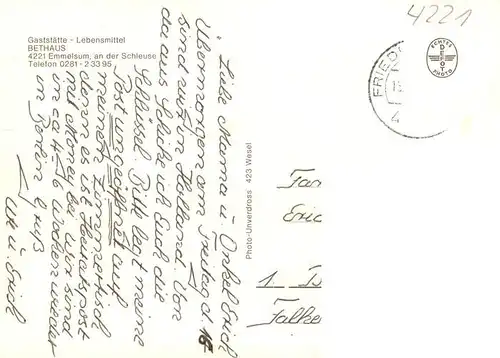 4221
Gaststätte - Lebensmittel
BETHAUS
4221 Emmelsum, an der Schleuse
Telefon 0281 - 2 33 95
Liebe Mama u. Onkel Erich
Übermorgen am Freitag d. 15
sind wir in Holland. Von
da aus schicke ich Euch die
Schlüssel. Bitte legt meine
Post ungeöffnet auf
meinen Zimmertisch
denn es ist
mit
in ca 4-6 Wochen wieder
in Berlin Gruß
Ute u. Erich
Photo-Unverdross 423 Wesel
FRIED
4
ECHTES
DEPOT
PHOTO
Fam
Eric
1